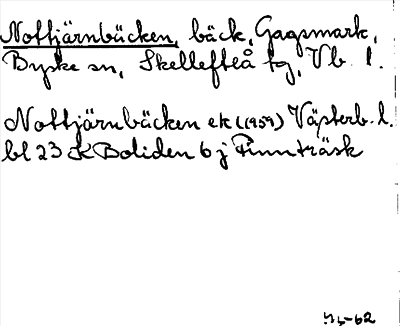 Nottjärnbäcken, bäck, Gagsmark,
Byske sn, Skellefteå tg, Vb. l.
Nottjärnbäcken ek (1959) Västerb. l.
bl 23 K Boliden 6 j Finnträsk